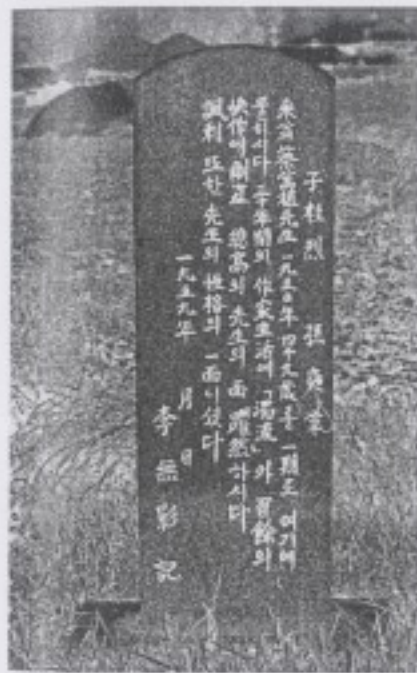 子桂烈 孫
蔡萬植先生 一九五〇年 四十九歲를 一期로 여기에
묻히시다 二十年間의 作家生活에 「濁流」와 百餘의
先生의 面 躍然하시다
또한 先生의 性格의 一面이셨다
一九五九年 月 日
李無影 記